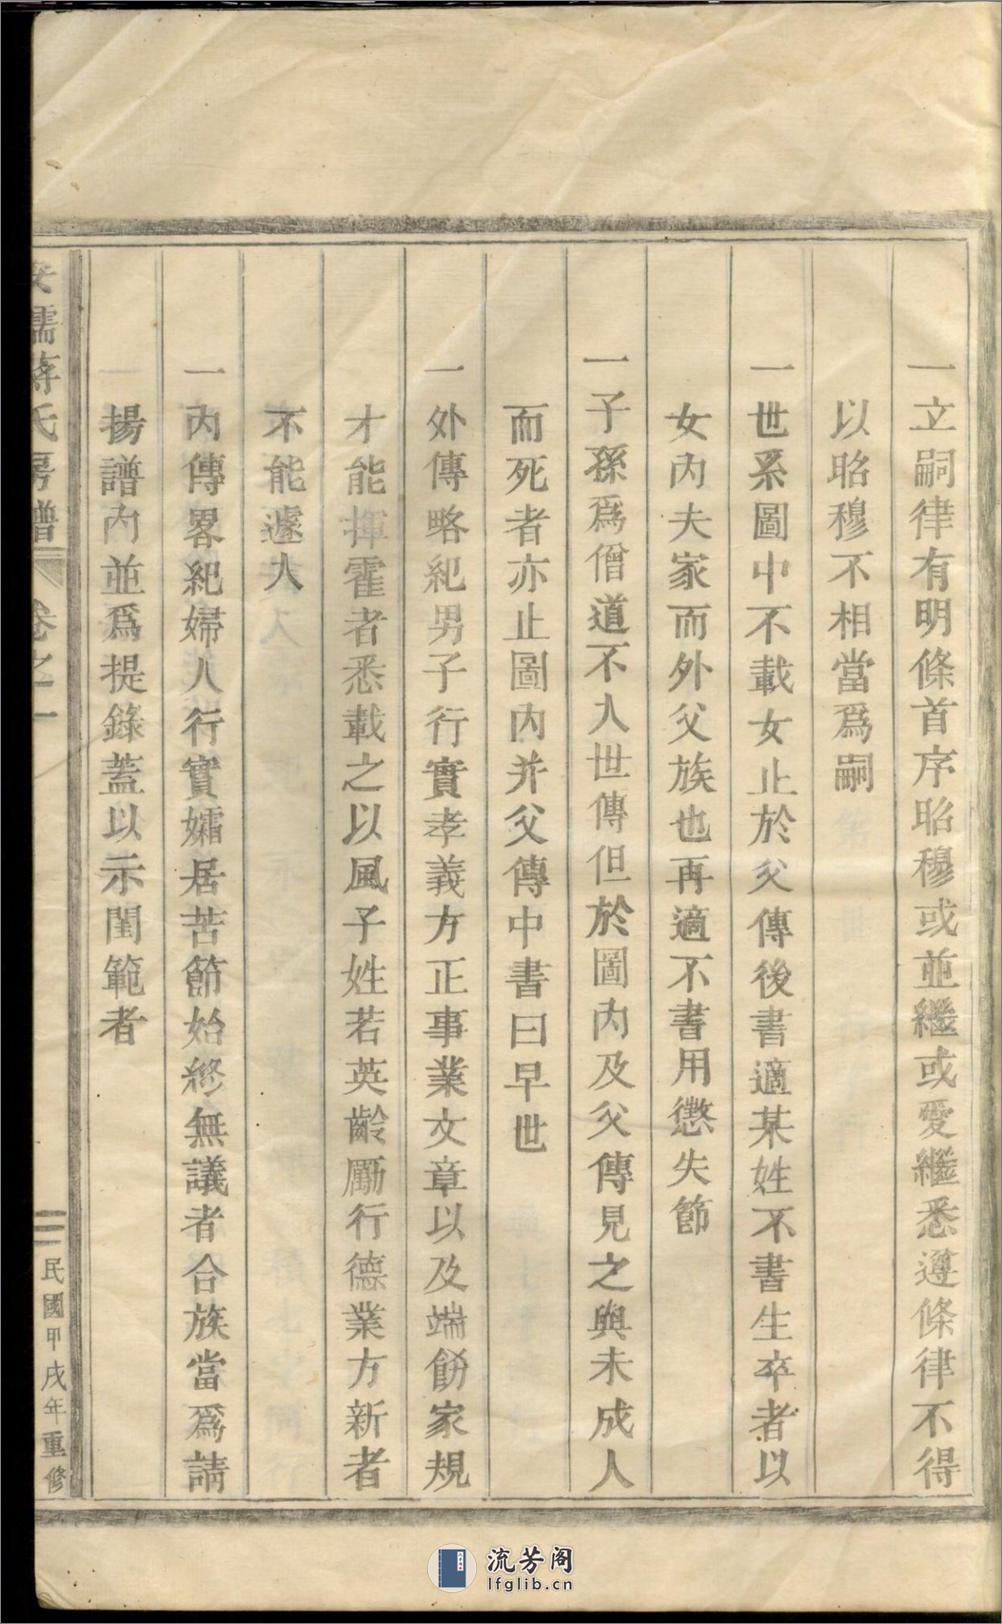 一立嗣律有明條首序昭穆或並繼或愛繼悉遵條律不得
以昭穆不相當爲嗣
一世系圖中不載女止於父傳後書適某姓不書生卒者以
女內夫家而外父族也再適不書用懲失節
一子孫爲僧道不入世傳但於圖內及父傳見之與未成人
而死者亦止圖內并父傳中書曰早世
一外傳略紀男子行實孝義方正事業文章以及端飭家規
才能揮霍者悉載之以風子姓若英齡勵行德業方新者
不能遽入
一內傳畧紀婦人行實孀居苦節始終無議者合族當爲請
揚譜內並爲提錄蓋以示閨範者
蔣氏房譜 卷之一
二 民國甲戌年重修
流芳阁
lfglib.cn